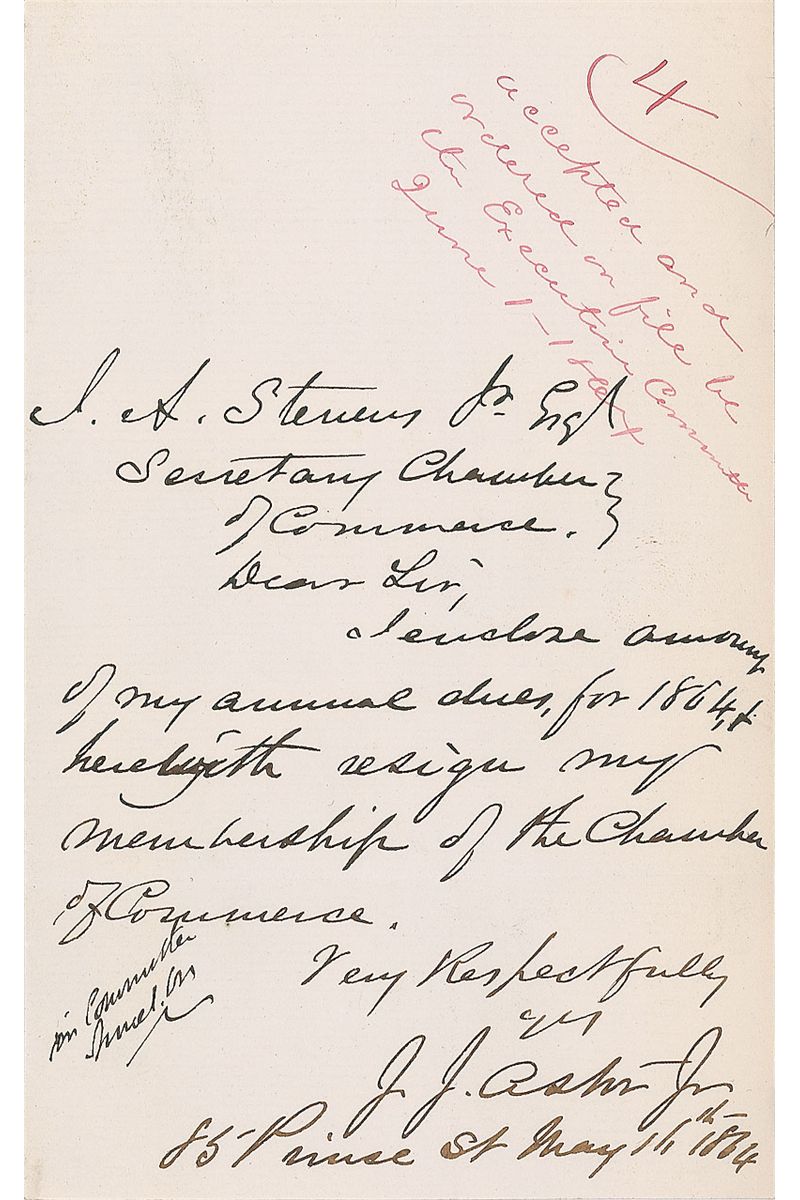 4
accepted and
ordered on file by
the Executive Committee
June 1 - 1864
J. A. Stevens Jr. Esq
Secretary Chamber
of Commerce.
Dear Sir,
I enclose amount
of my annual dues, for 1864, &
herewith resign my
membership of the Chamber
of Commerce.
Very Respectfully
yrs
J. J. Astor Jr
85 Prince St May 16th 1864
in Committee
June 1.